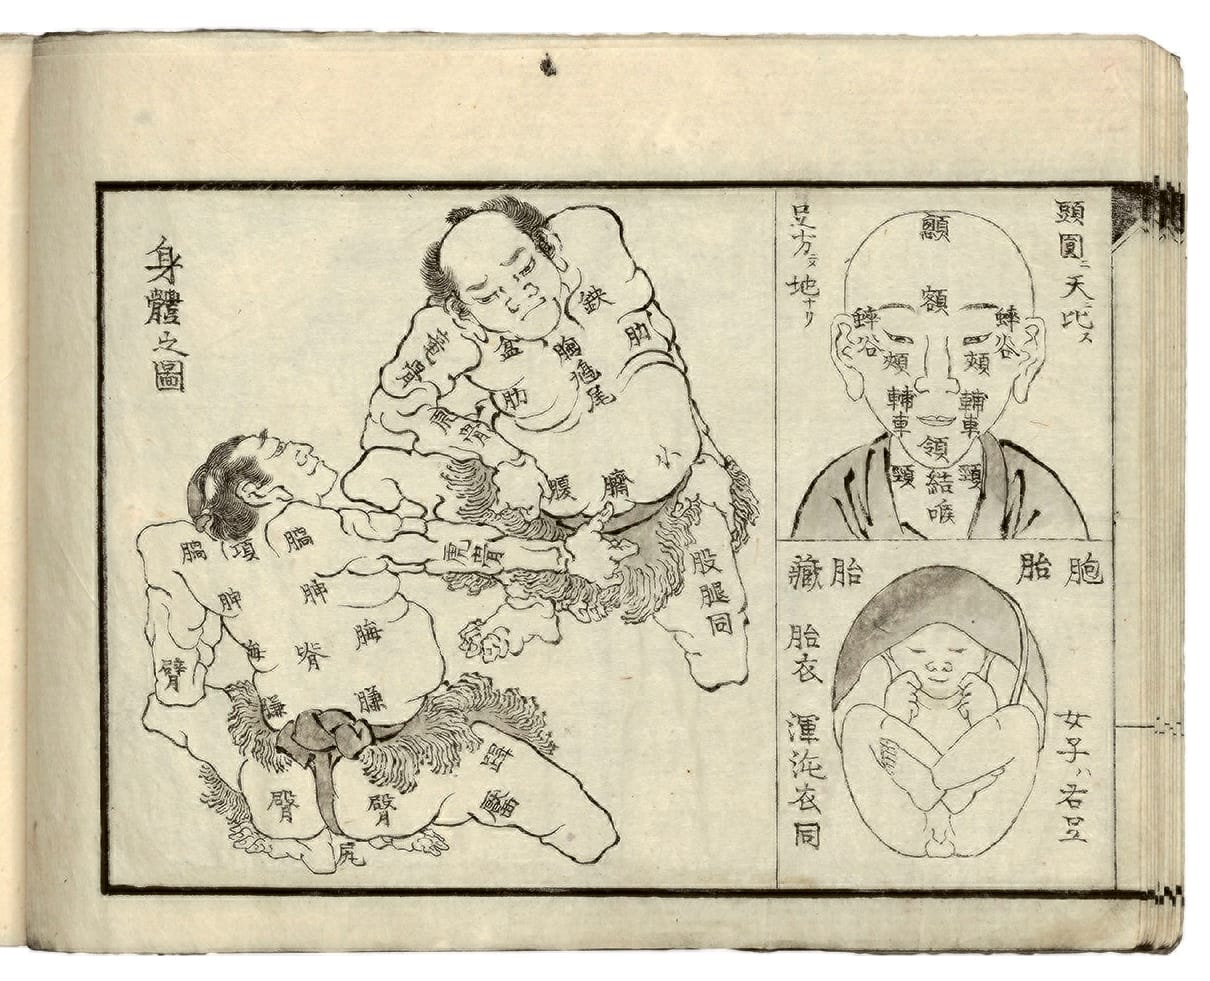 頭圓ニ天ニ比ス
足方ニ〆地ナリ
顱
額
蟀谷
蟀谷
頬
頬
輔車
輔車
頷
頸
頸
結喉
胞胎
胎藏
胎衣
渾沌衣同
女子ハ右足
身體之圖
缺
盆
胸
肋
肋
鳩尾
腹
臍
小
股腿同
項
胛
胛
脢
脢
脊
臂
膁
膁
臀
臀
尻